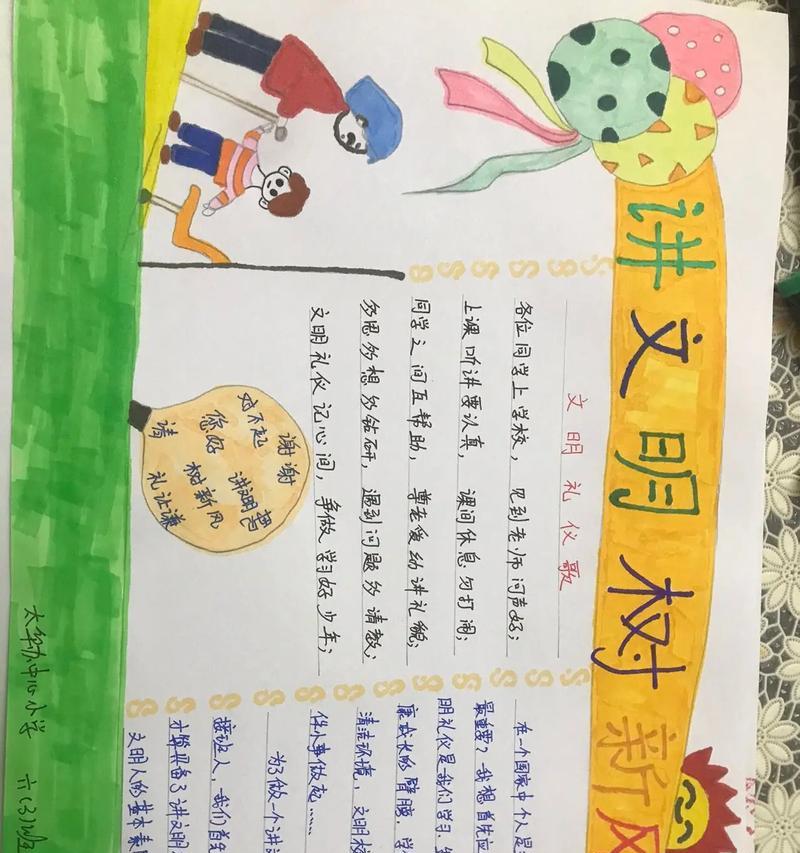 讲文明树新风
文明礼仪歌
各位同学上学校，见到老师问声好；
上课听讲要认真，课间休息勿打闹；
同学之间互帮助，尊老爱幼讲礼貌；
多思多想多钻研，遇到问题多请教；
文明礼仪记心间，争做学习好少年；
谢谢
对不起
讲文明
您好
树新风
请
礼让谦
在一个国家中个人是
最重要？我想首先应
明礼仪是我们学习、
康成长的臂膀，学
清洁环境，文明校
件小事做起……
为了做一个讲
接班人，我们首先
才算具备了讲文明
文明人的基本素
中心小学 六(3)班